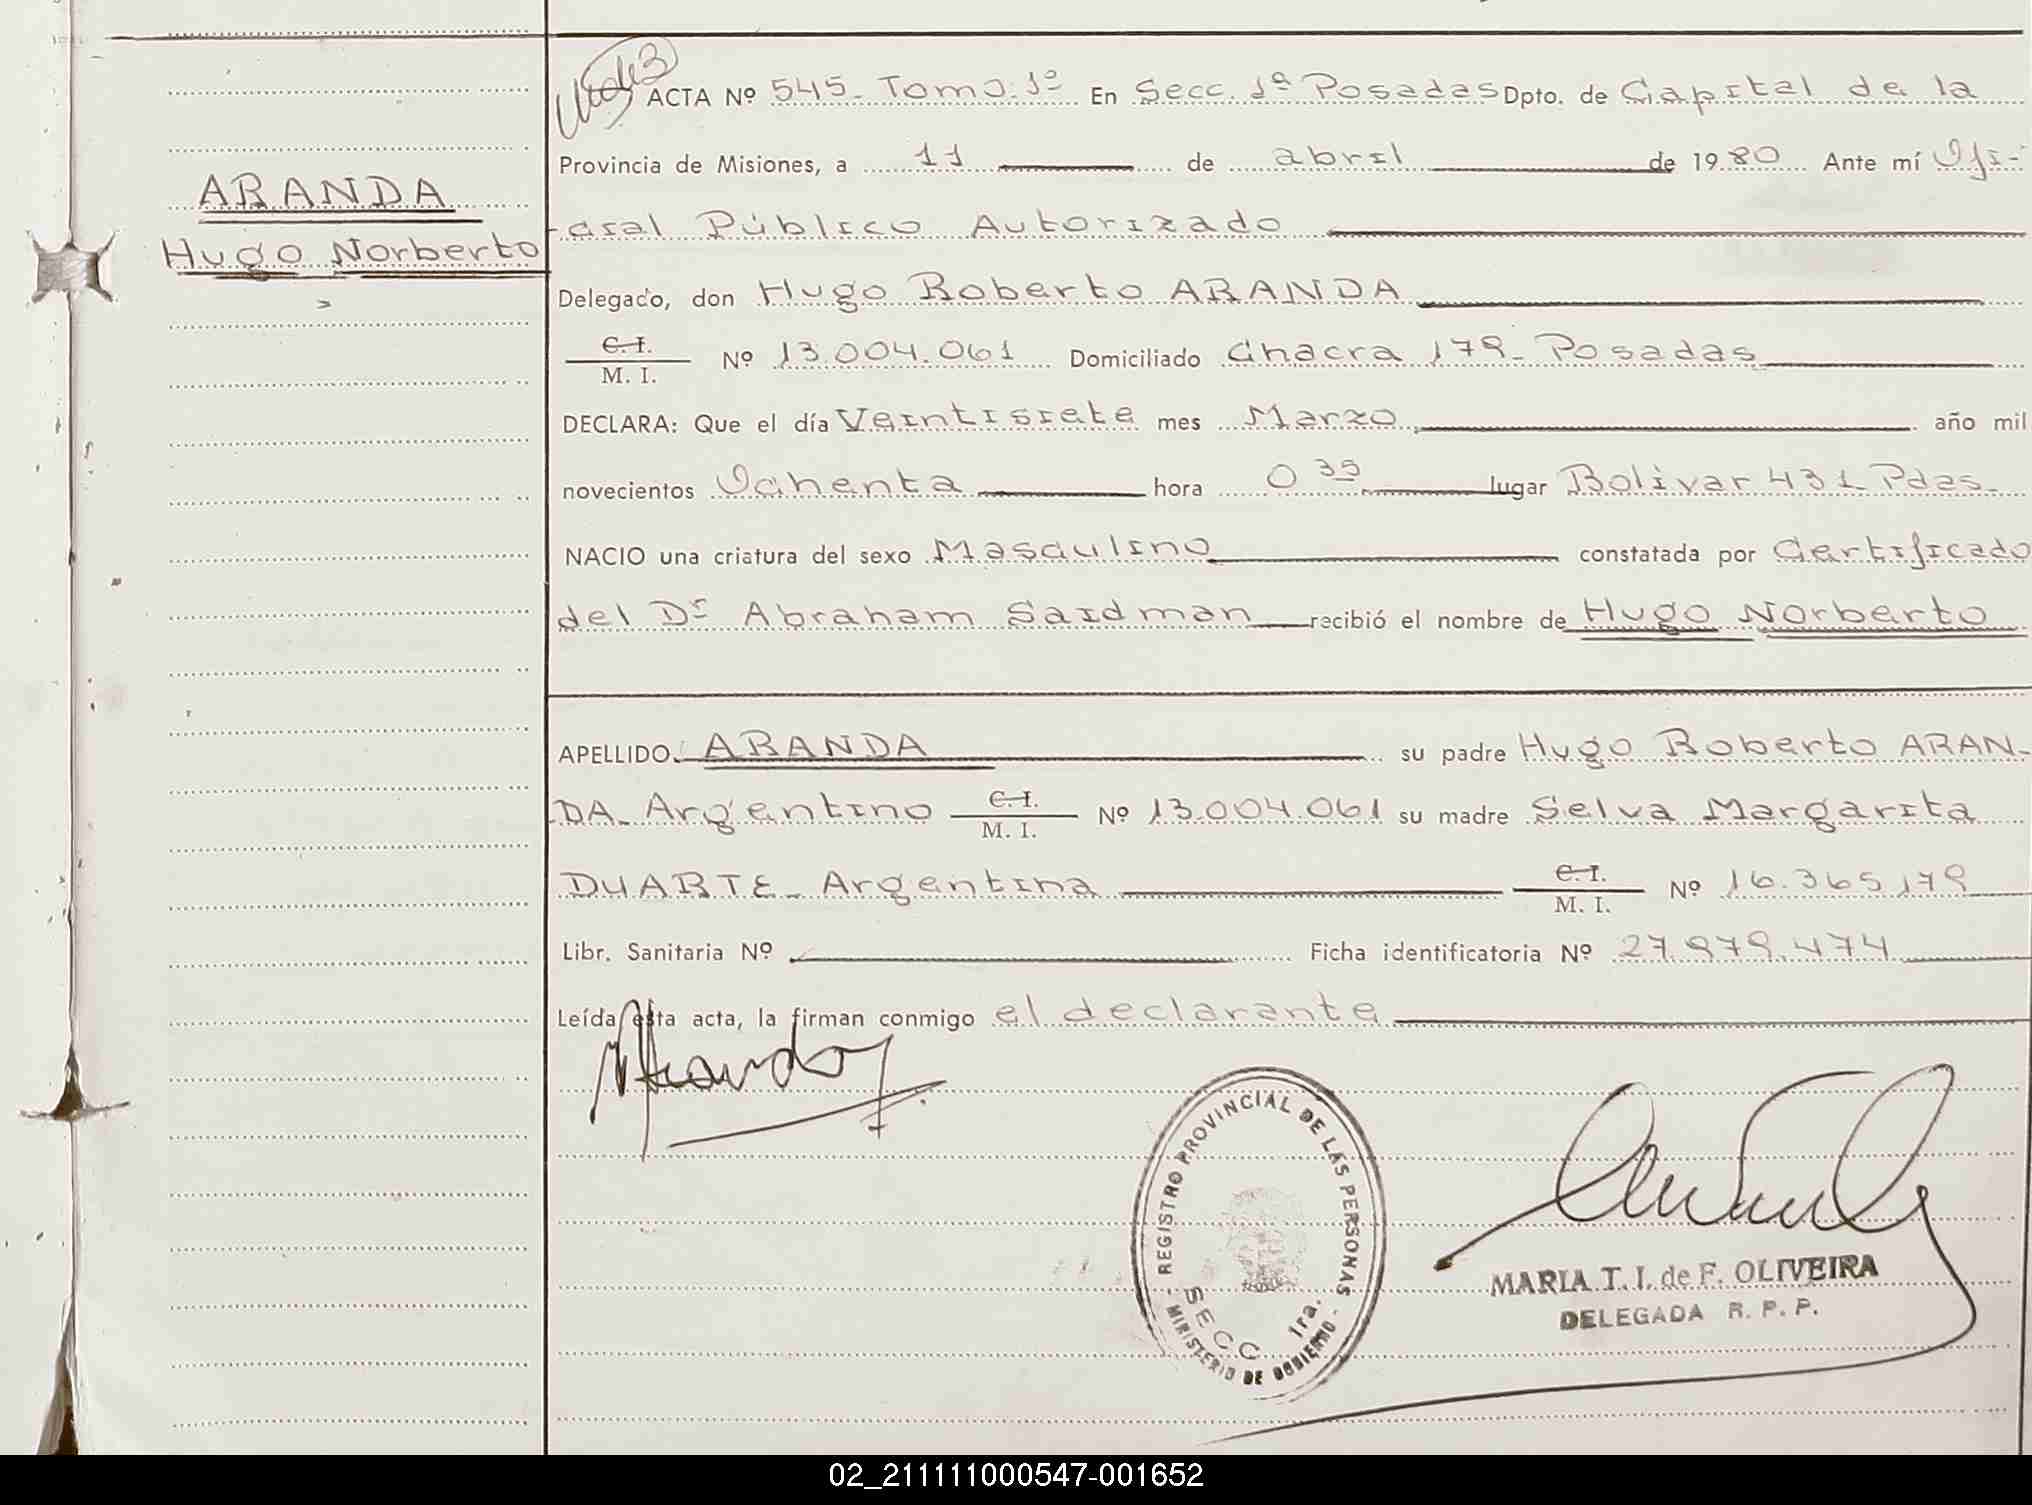 ARANDA
Hugo Norberto
ACTA Nº 545- Tomo 1º En Secc. 1ª Posadas Dpto. de Capital de la
Provincia de Misiones, a 11 de abril de 1980 Ante mí Ofi-
cial Público Autorizado
Delegado, don Hugo Roberto ARANDA
C. I.
M. I. Nº 13.004.061 Domiciliado Chacra 179- Posadas
DECLARA: Que el día Veintisiete mes Marzo año mil
novecientos Ochenta hora 0 35 lugar Bolivar 431- Pdas-
NACIO una criatura del sexo Masculino constatada por Certificado
del Dr Abraham Saidman recibió el nombre de Hugo Norberto
APELLIDO ARANDA su padre Hugo Roberto ARAN-
DA- Argentino C. I. M. I. Nº 13.004.061 su madre Selva Margarita
DUARTE- Argentina C. I. M. I. Nº 16.365.179
Libr. Sanitaria Nº Ficha identificatoria Nº 27.979.474
Leída esta acta, la firman conmigo el declarante
- REGISTRO PROVINCIAL DE LAS PERSONAS -
MINISTERIO DE GOBIERNO
SECC 1ra.
MARIA T. I. de F. OLIVEIRA
DELEGADA R. P. P.
02_211111000547-001652